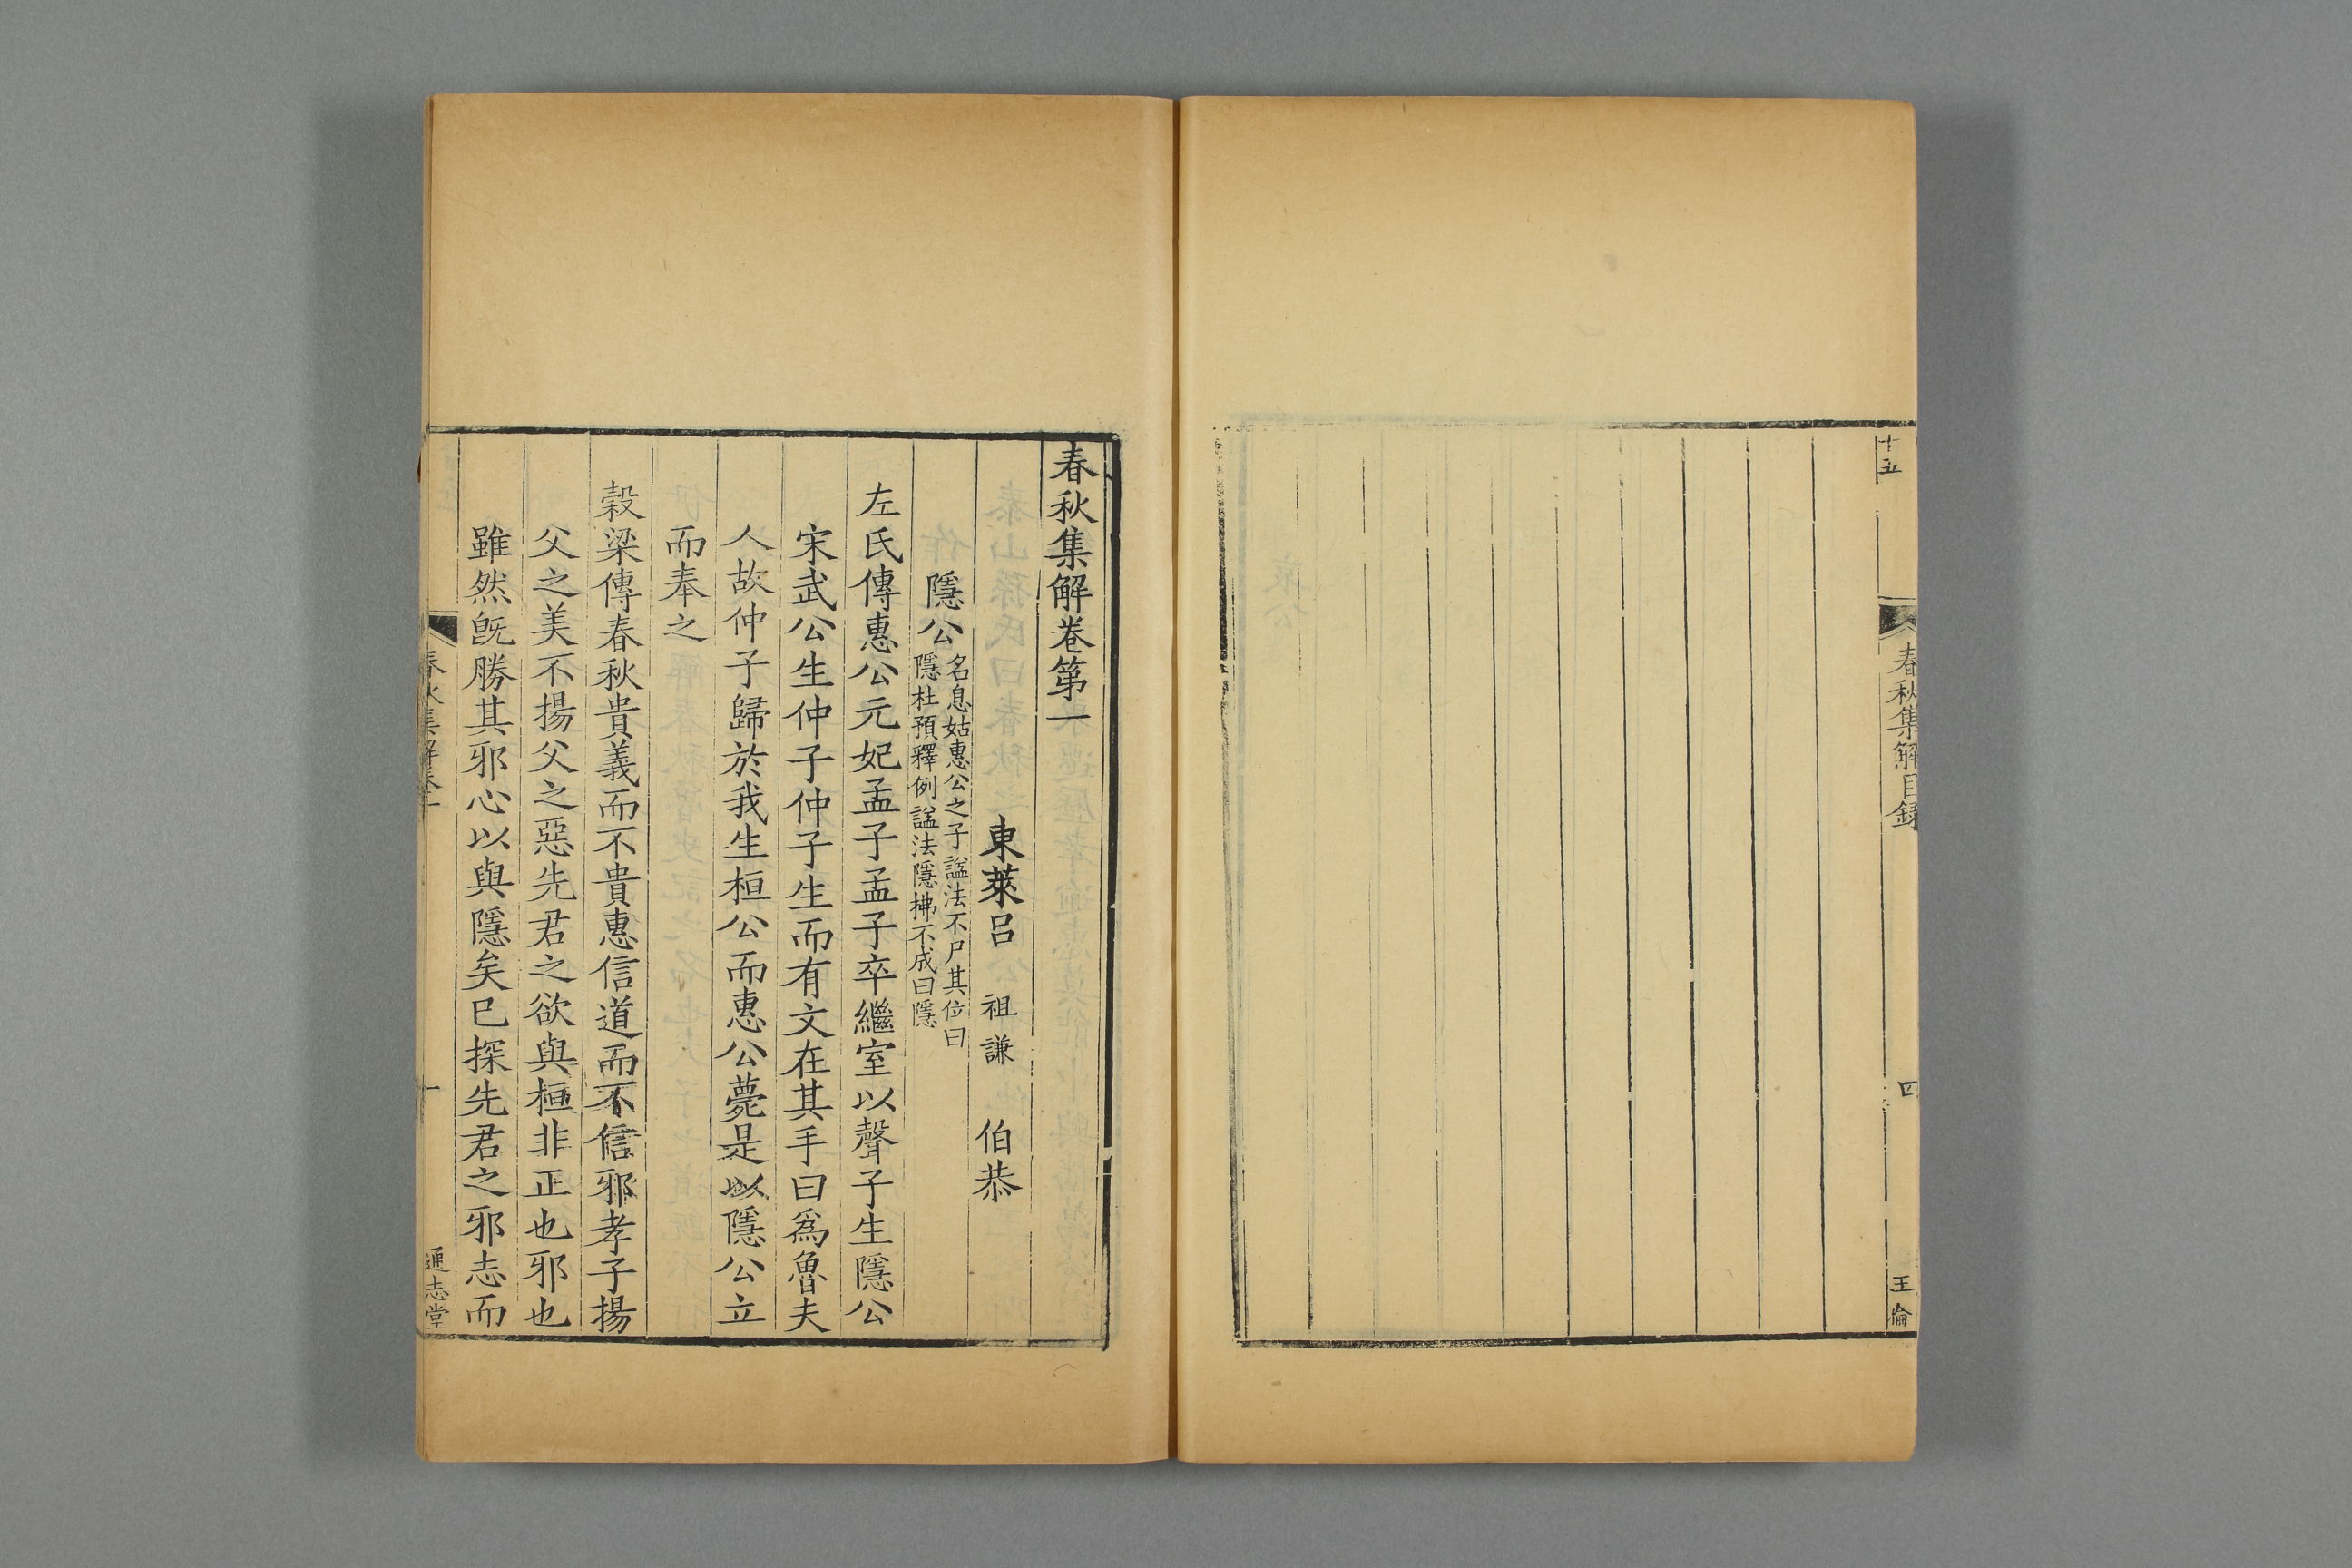 十五
春秋集解目録
四
王倫
春秋集解卷第一
東萊呂 祖謙 伯恭
隱公 名息姑惠公之子諡法不尸其位曰
隱杜預釋例諡法隱拂不成曰隱
左氏傳惠公元妃孟子孟子卒繼室以聲子生隱公
宋武公生仲子仲子生而有文在其手曰爲魯夫
人故仲子歸於我生桓公而惠公薨是以隱公立
而奉之
榖梁傳春秋貴義而不貴惠信道而不信邪孝子揚
父之美不揚父之惡先君之欲與桓非正也邪也
雖然旣勝其邪心以與隱矣已探先君之邪志而
春秋集解卷一
一
通志堂